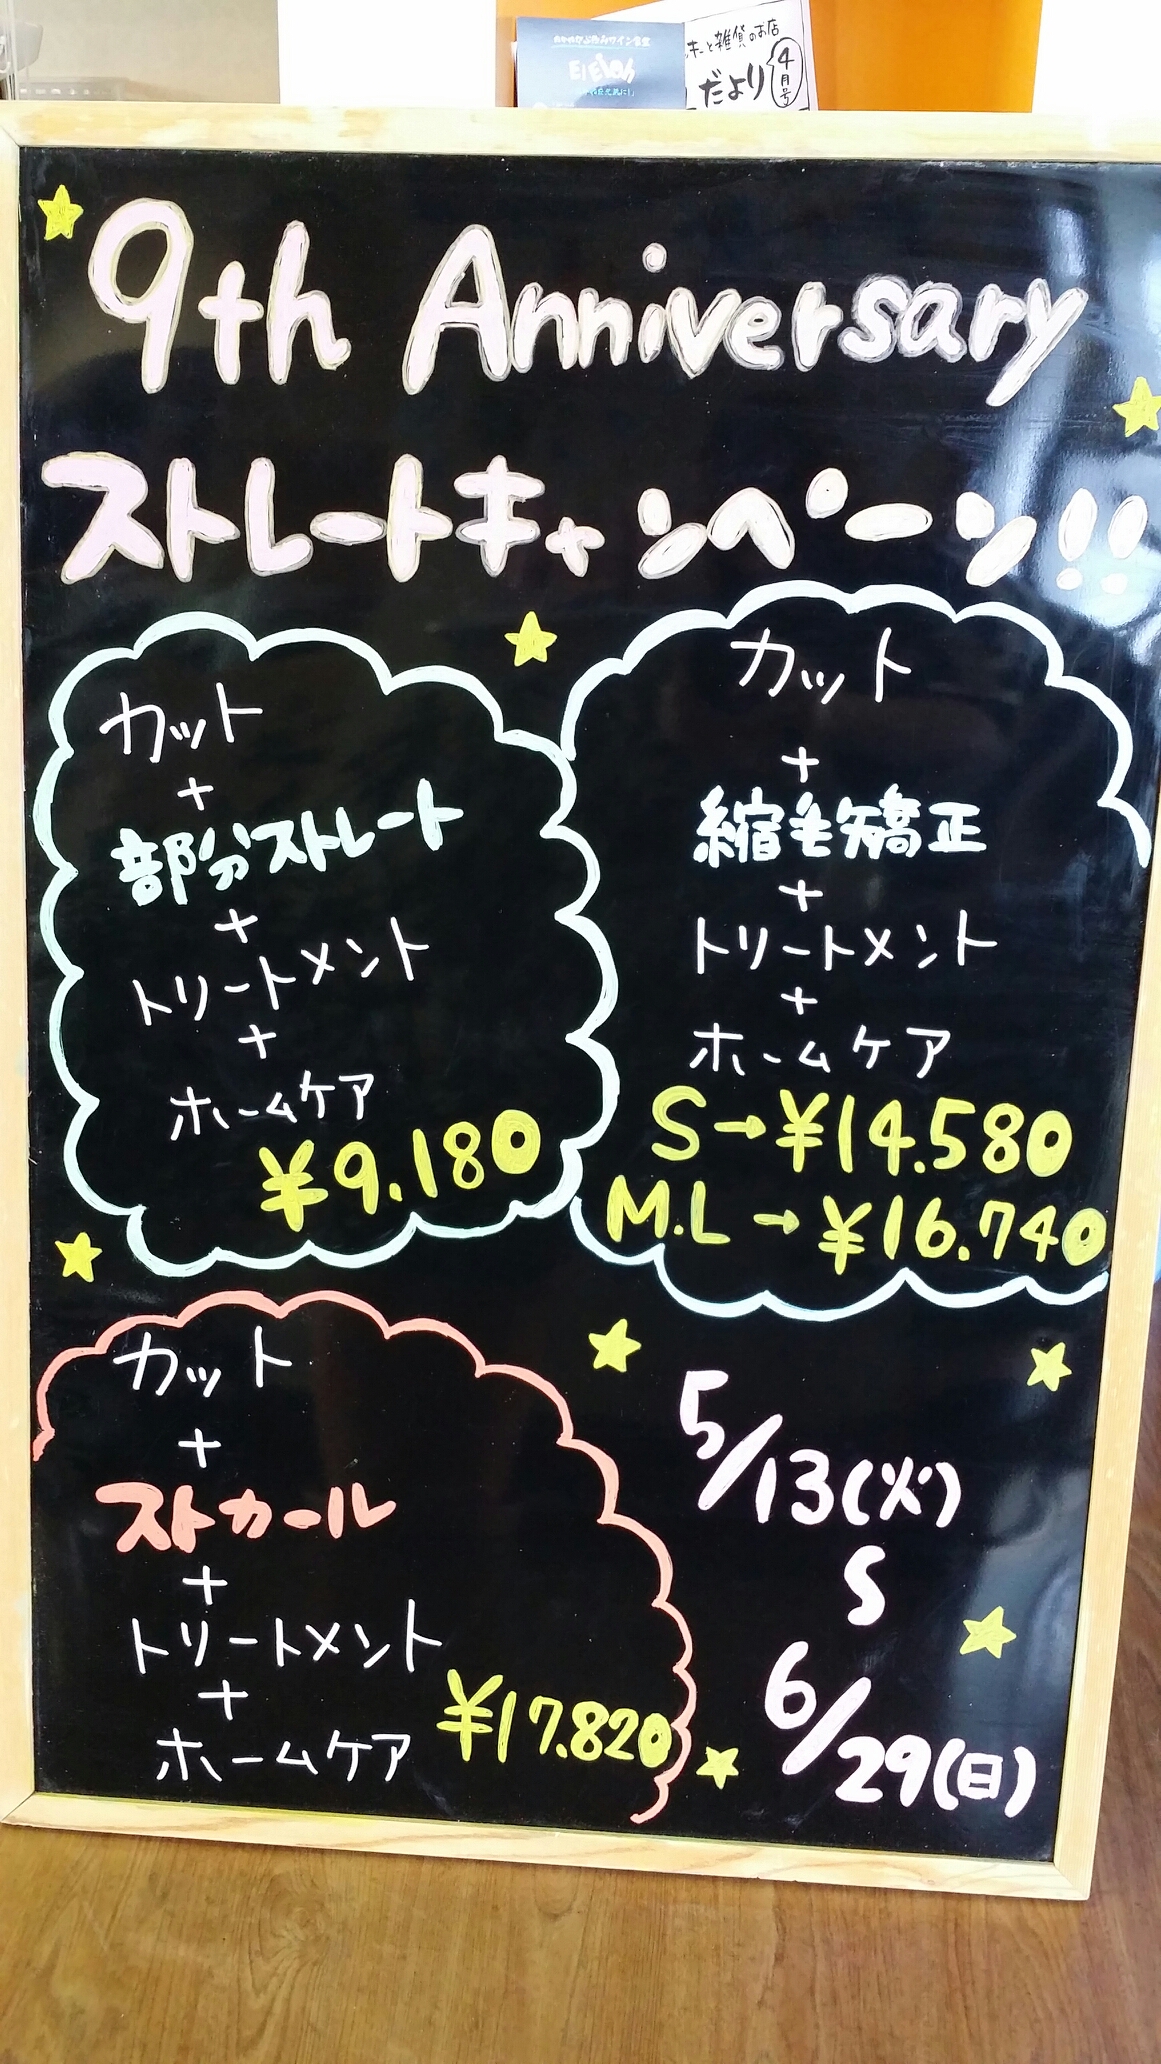 Eleloh
雑貨のお店
だより
4月号
9th Anniversary
ストレートキャンペーン!!
カット
+
部分ストレート
+
トリートメント
+
ホームケア
¥9.180
カット
+
縮毛矯正
+
トリートメント
+
ホームケア
S→¥14.580
M.L→¥16.740
カット
+
ストカール
+
トリートメント
+
ホームケア
¥17.820
5/13(火)
S
6/29(日)